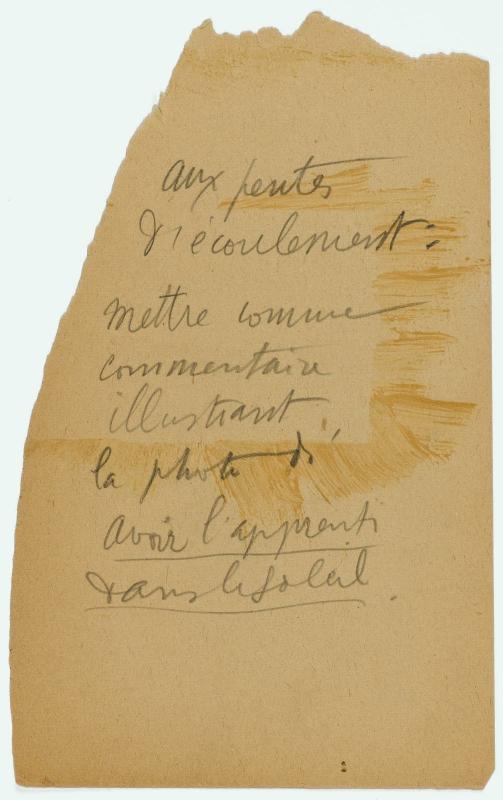 aux pentes
d'écoulement :
mettre comme
commentaire
illustrant
la photo d'
avoir l'apprenti
dans le soleil.